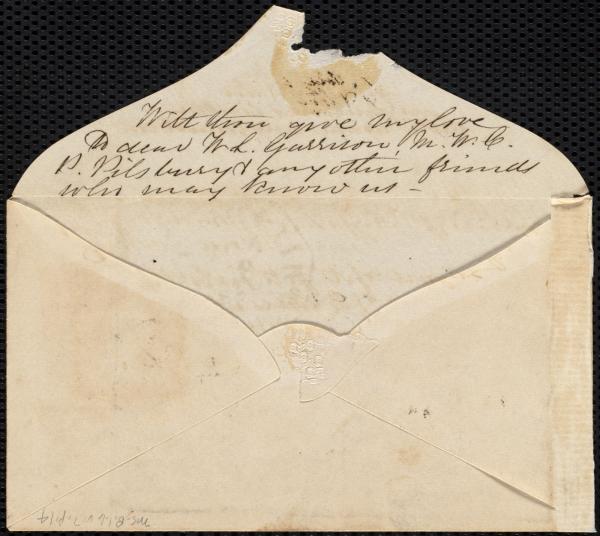 Wilt thou give my love
to dear W. L. Garrison, M. W. C.
P. Pilsbury & any other friends
who may know us —